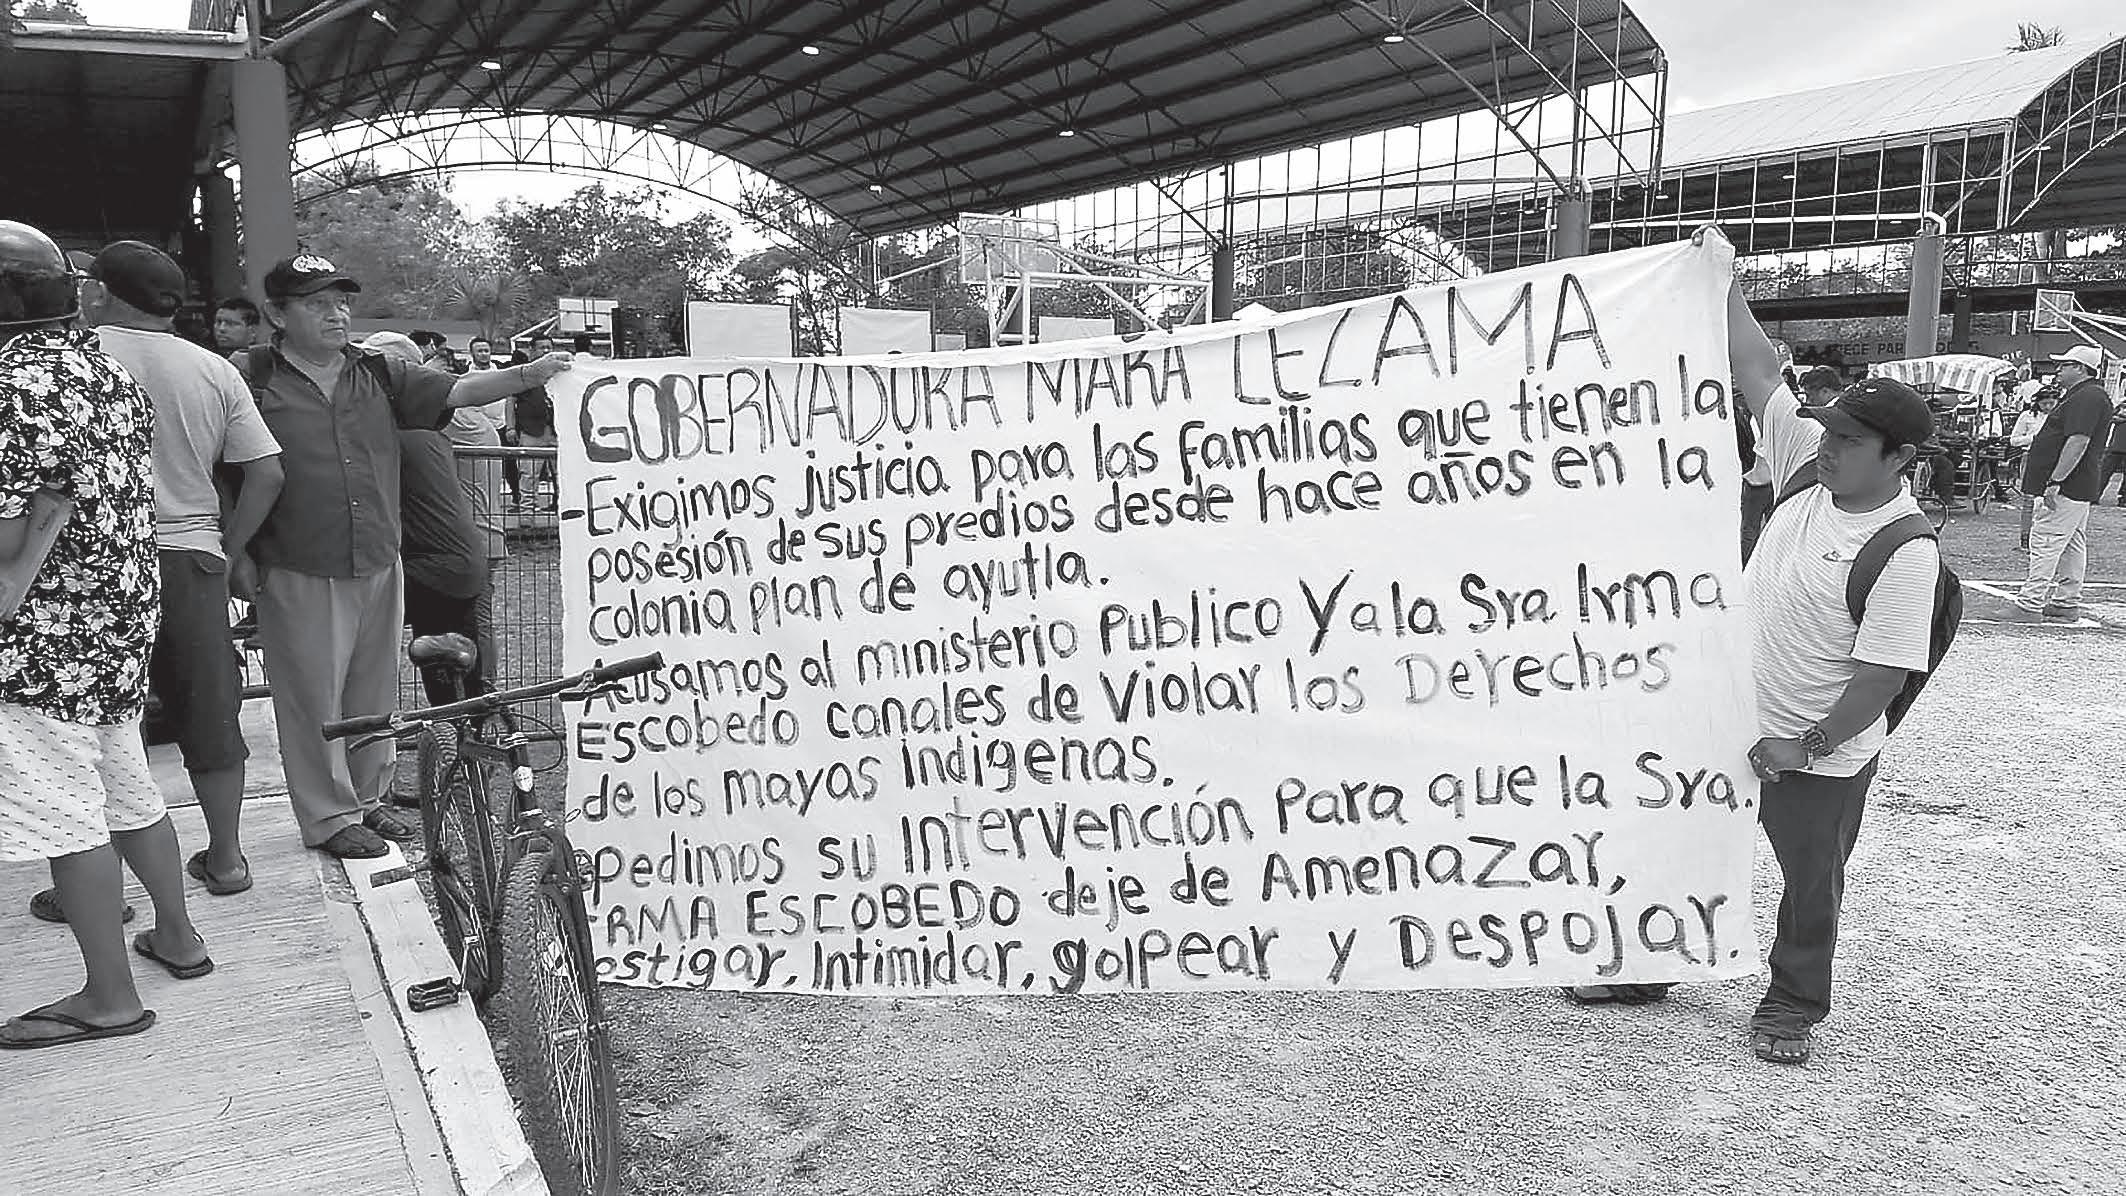 GOBERNADORA MARA LEZAMA
-Exigimos justicia para las familias que tienen la
posesión de sus predios desde hace años en la
colonia plan de ayutla.
Acusamos al ministerio Publico Y a la Sra Irma
Escobedo canales de Violar los Derechos
de los mayas Indigenas.
pedimos su Intervención Para que la Sra.
IRMA ESCOBEDO deje de Amenazar,
ostigar, Intimidar, golpear y Despojar.